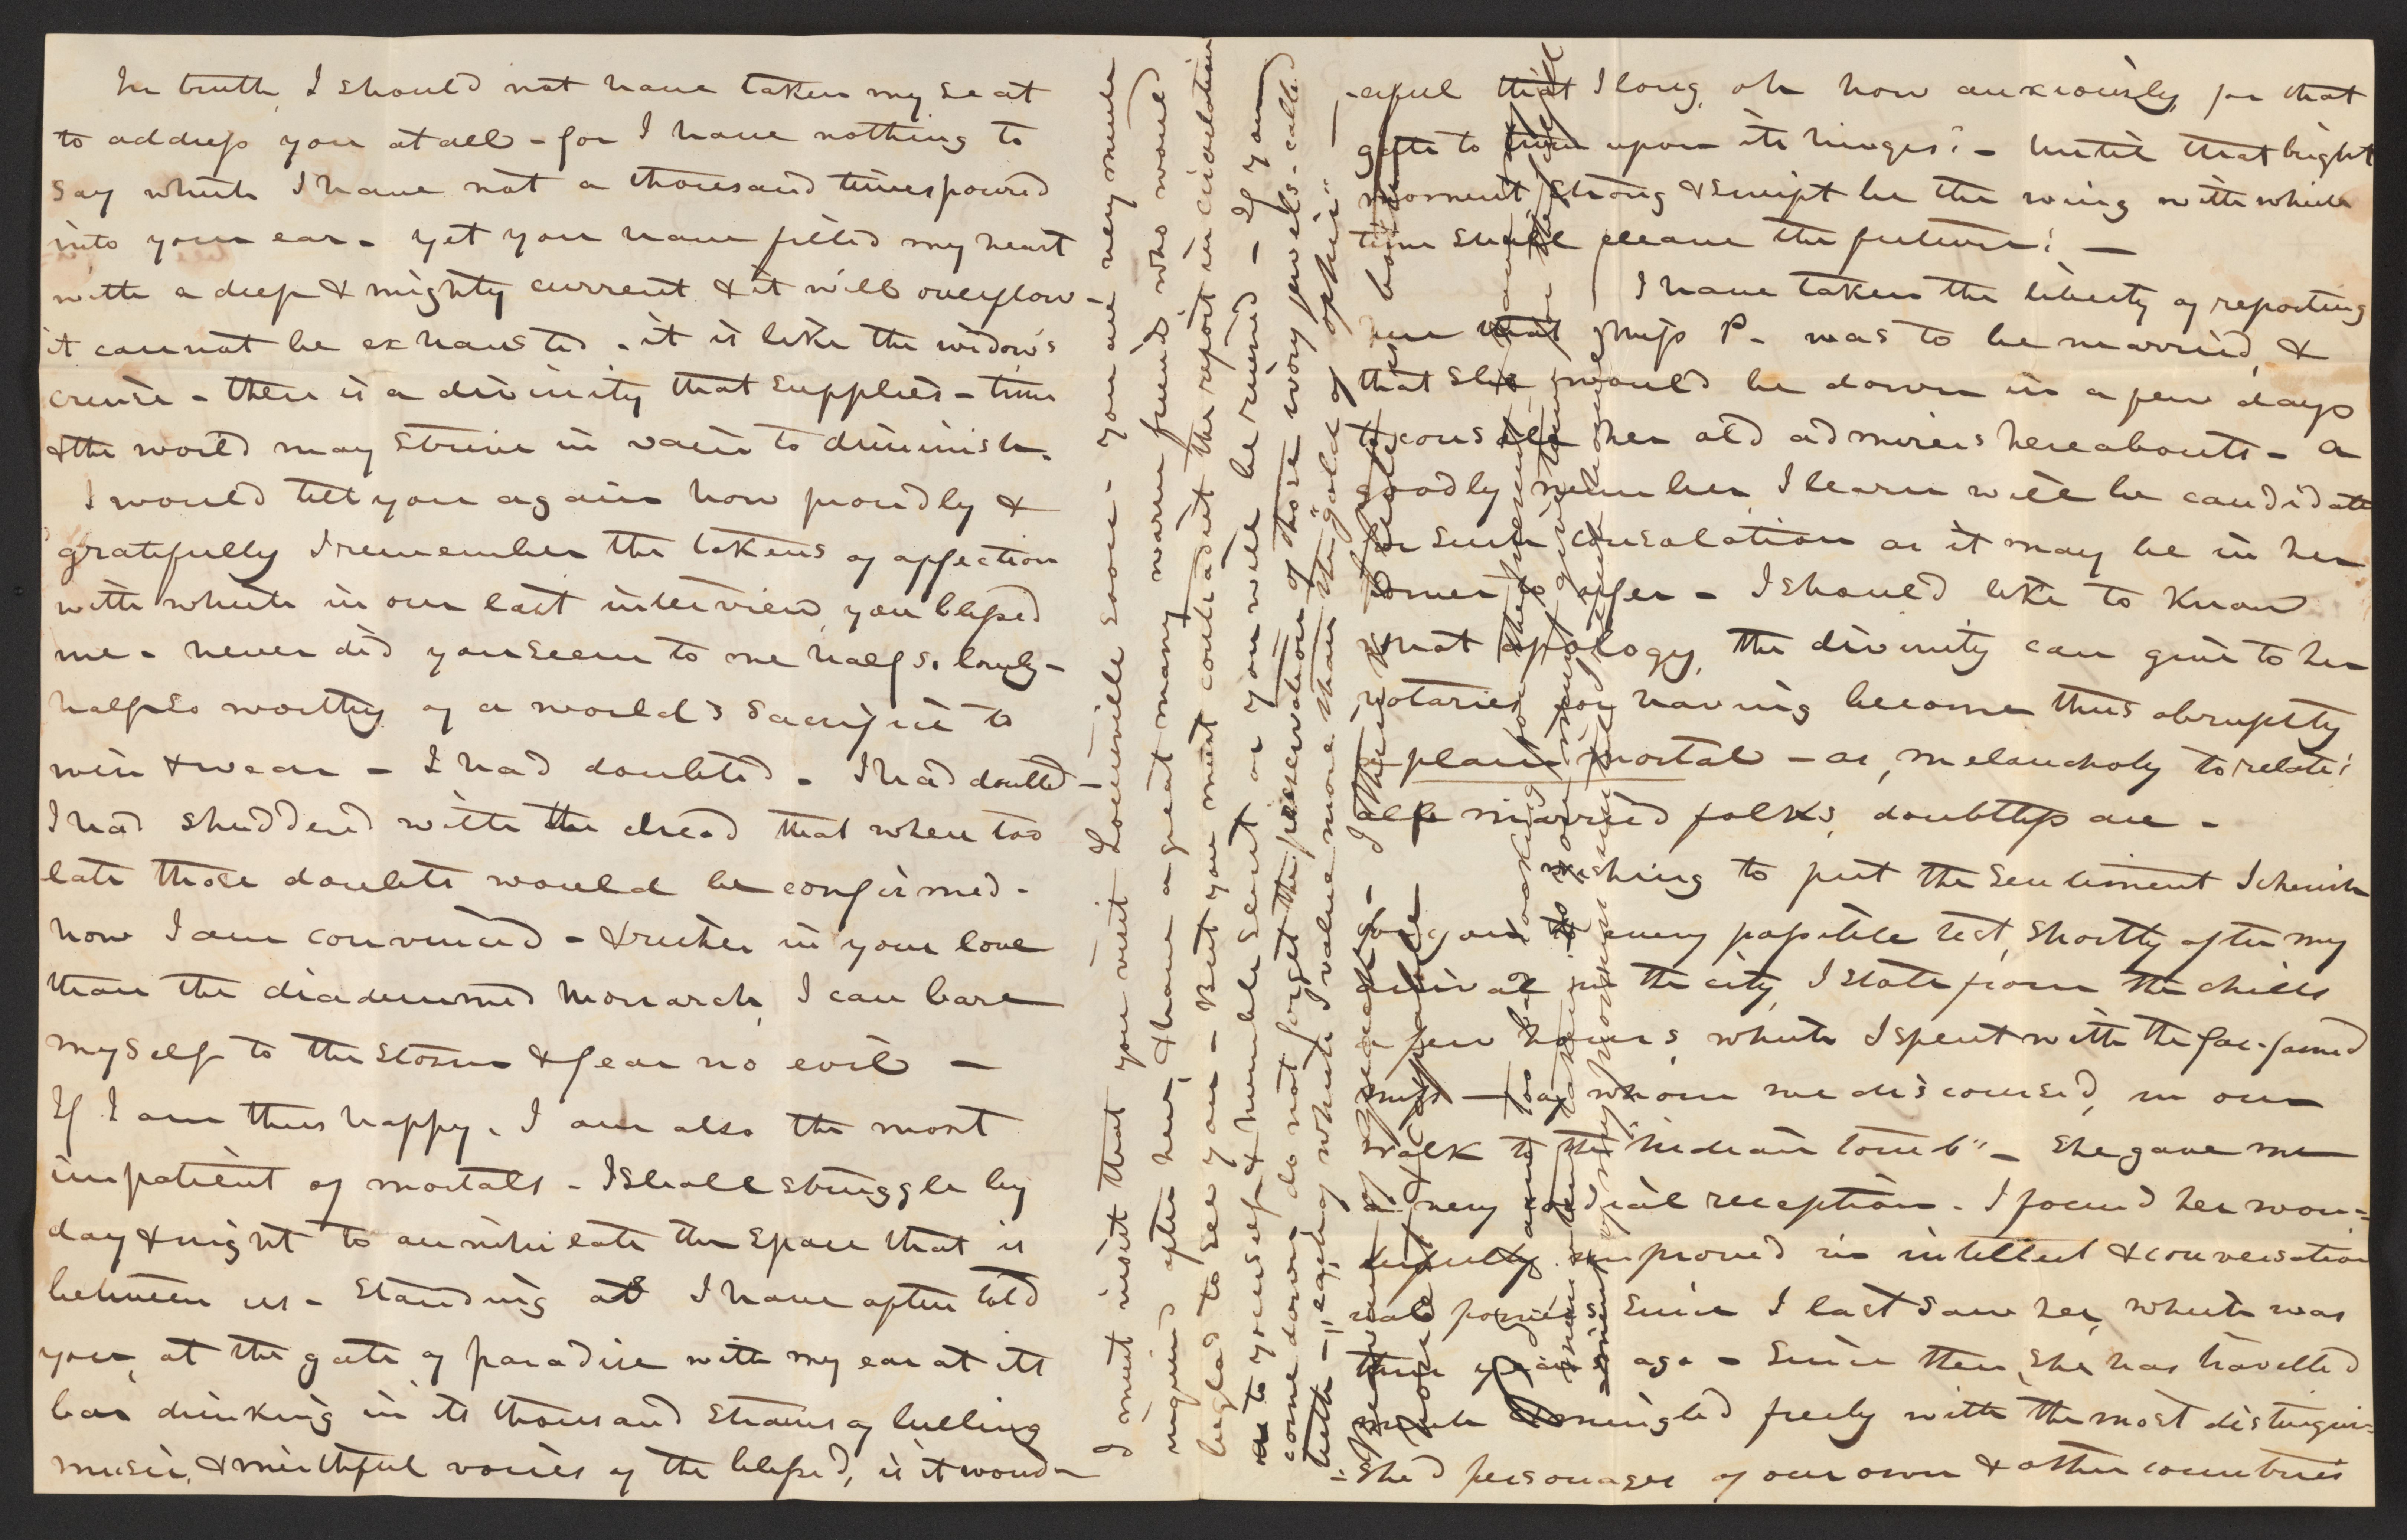 In truth, I should not have taken my seat
to address you at all - for I have nothing to
say which I have not a thousand times poured
into your ear - yet you have filled my heart
with a deep & mighty current & it will overflow -
it cannot be exhausted - it is like the widow's
cruise - there is a divinity that supplies - time
& the world may strive in vain to diminish.
I would tell you again how proudly &
gratefully I remember the tokens of affection
with which in our last interview, you blessed
me - never did you seem to me half so lovely -
half so worthy of a world's sacrifice to
win & wear - I had doubted - I had doubted -
I had shuddered with the dread that when too
late those doubts would be confirmed -
now I am convinced - & richer in your love
than the diademmed monarch, I can bare
myself to the storm & fear no evil -
If I am thus happy, I am also the most
impatient of mortals - I shall struggle by
day & night to annihilate the space that is
between us - standing as I have often told
you, at the gate of paradise with my ear at its
bars drinking in its thousand strains of lulling
music, & mirthful voices of the blessed, is it wond-
I must insist that you visit Louisville soon - you are very much
inquired after here, & have a great many warm friends, who would
be glad to see you - But you must contradict the report in circulation
as to yourself & humble servant or you will be ruined - If you
come down do not forget the preservation of those ivory jewels - called
teeth - "each of which I value more than the "gold of ophir" -
-erful that I long, oh how anxiously, for that
gate to turn upon its hinges! - Until that bright
moment, strong & swift be the wing with which
time shall cleave the future! -
I have taken the liberty of reporting
here that Miss P. was to be married, &
that she would be down in a few days
to console her old admirers hereabouts - a
goodly number, I learn will be candidates
for such consolation as it may be in her
power to offer - I should like to know
what apology, the divinity can give to her
votaries for having become thus abruptly
a plain mortal - as, melancholy to relate!
all married folks, doubtless are -
wishing to put the sentiment I cherish
for you to every possible test, shortly after my
arrival in the city, I stole from the chills
a few hours, which I spent with the far-famed
miss — of whom we discoursed, in our
walk to the "Indian tomb" - She gave me
a very cordial reception - I found her won-
derfully improved in intellect & conversation
al powers since I last saw her, which was
three years ago - Since then, she has travelled
much & mingled freely with the most distingui-
-shed personages of our own & other countries